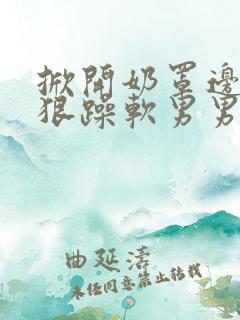 掀開奶罩邊
狠躁軟男男
曲延濤
未经同意禁止转载